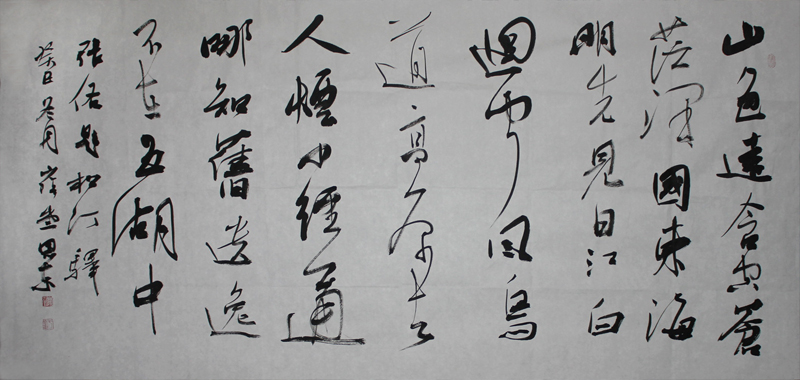 山色遠含空蒼
茫澤國東海
明先見日江白
迴聞風鳥
道高原去
人煙小經通
哪知舊遺逸
不在五湖中
張佑題松汀驛
癸巳 月 堂